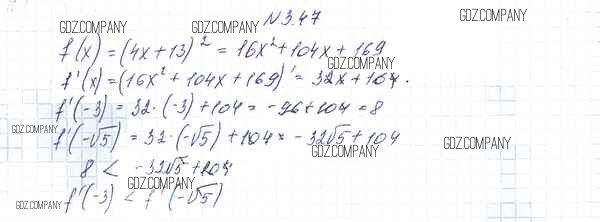 N 3.47
GDZ.COMPANY GDZ.COMPANY GDZ.COMPANY
f(x) = (4x+13)² = 16x²+104x+169
GDZ.COMPANY
f'(x) = (16x²+104x+169)' = 32x+104.
f'(-3) = 32·(-3)+104 = -96+104 = 8
GDZ.COMPANY
f'(-√5) = 32·(-√5)+104 = -32√5+104
GDZ.COMPANY GDZ.COMPANY
8 < -32√5+104
GDZ.COMPANY
f'(-3) < f'(-√5)
GDZ.COMPANY